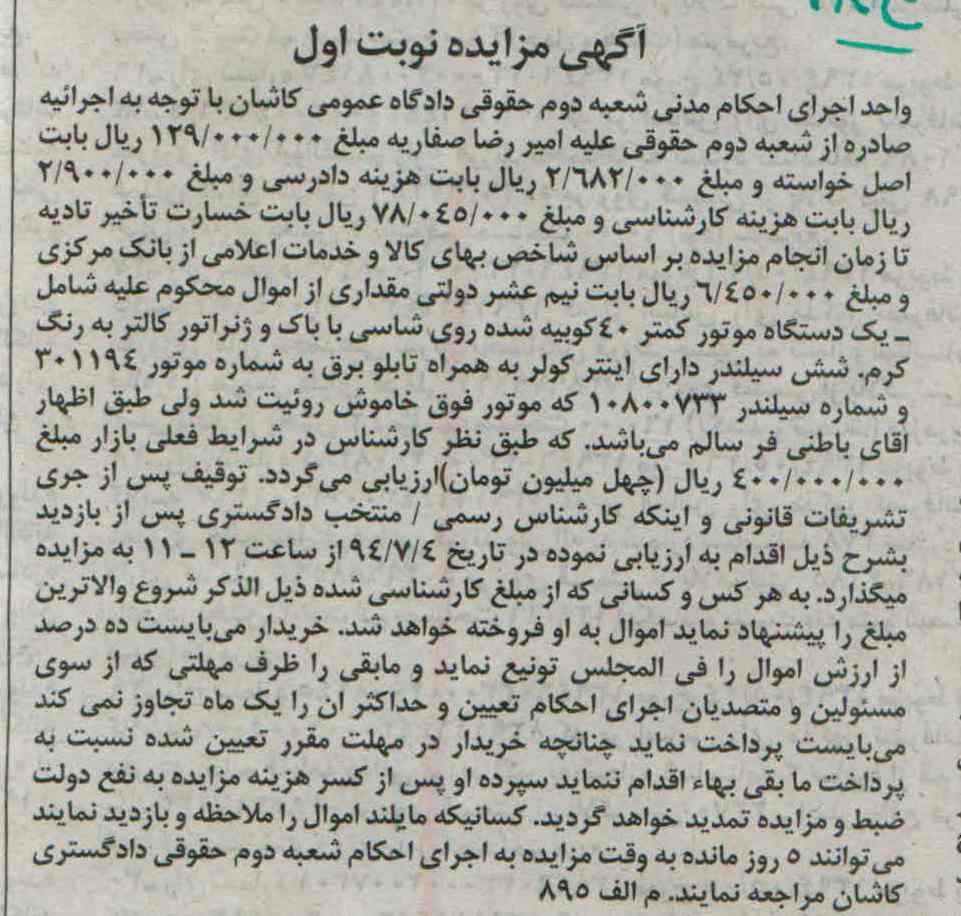 آگهی مزایده نوبت اول
واحد اجرای احکام مدنی شعبه دوم حقوقی دادگاه عمومی کاشان با توجه به اجرائیه
صادره از شعبه دوم حقوقی علیه امیر رضا صفاریه مبلغ ۱۲۹/۰۰۰/۰۰۰ ریال بابت
اصل خواسته و مبلغ ۲/٦۸۲/۰۰۰ ریال بابت هزینه دادرسی و مبلغ ۲/۹۰۰/۰۰۰
ریال بابت هزینه کارشناسی و مبلغ ۷۸/۰٤۵/۰۰۰ ریال بابت خسارت تأخیر تادیه
تا زمان انجام مزایده بر اساس شاخص بهای کالا و خدمات اعلامی از بانک مرکزی
و مبلغ ٦/٤۵۰/۰۰۰ ریال بابت نیم عشر دولتی مقداری از اموال محکوم علیه شامل
ـ یک دستگاه موتور کمتر ٤۰کوبیه شده روی شاسی با باک و ژنراتور کالتر به رنگ
کرم. شش سیلندر دارای اینتر کولر به همراه تابلو برق به شماره موتور ۳۰۱۱۹٤
و شماره سیلندر ۱۰۸۰۰۷۳۳ که موتور فوق خاموش روئیت شد ولی طبق اظهار
اقای باطنی فر سالم می‌باشد. که طبق نظر کارشناس در شرایط فعلی بازار مبلغ
٤۰۰/۰۰۰/۰۰۰ ریال (چهل میلیون تومان)ارزیابی می‌گردد. توقیف پس از جری
تشریفات قانونی و اینکه کارشناس رسمی / منتخب دادگستری پس از بازدید
بشرح ذیل اقدام به ارزیابی نموده در تاریخ ۹٤/۷/٤ از ساعت ۱۲ ـ ۱۱ به مزایده
میگذارد. به هر کس و کسانی که از مبلغ کارشناسی شده ذیل الذکر شروع والاترین
مبلغ را پیشنهاد نماید اموال به او فروخته خواهد شد. خریدار می‌بایست ده درصد
از ارزش اموال را فی المجلس تونیع نماید و مابقی را ظرف مهلتی که از سوی
مسئولین و متصدیان اجرای احکام تعیین و حداکثر ان را یک ماه تجاوز نمی کند
می‌بایست پرداخت نماید چنانچه خریدار در مهلت مقرر تعیین شده نسبت به
پرداخت ما بقی بهاء اقدام ننماید سپرده او پس از کسر هزینه مزایده به نفع دولت
ضبط و مزایده تمدید خواهد گردید. کسانیکه مایلند اموال را ملاحظه و بازدید نمایند
می‌توانند ۵ روز مانده به وقت مزایده به اجرای احکام شعبه دوم حقوقی دادگستری
کاشان مراجعه نمایند. م الف ۸۹۵